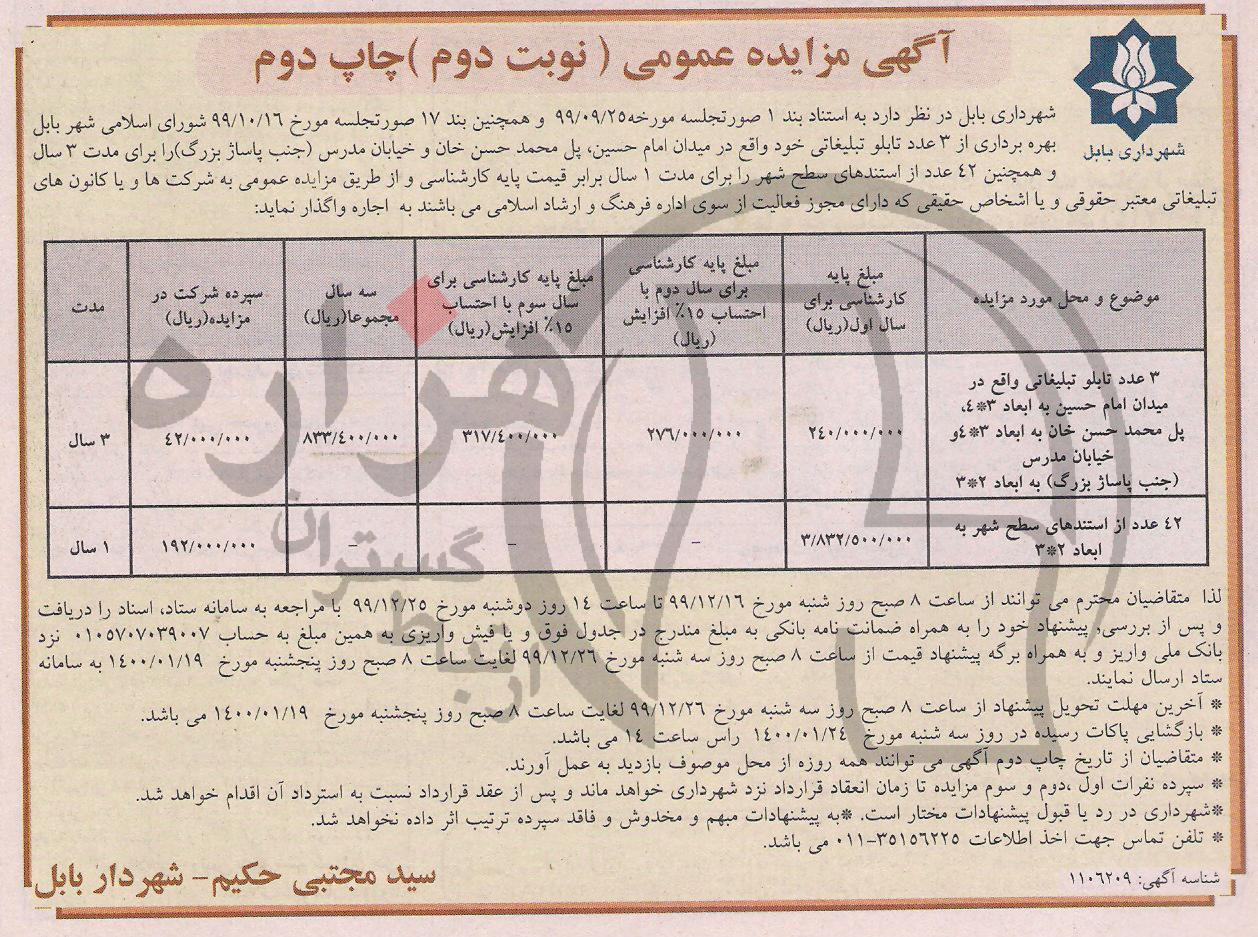 آگهی مزایده عمومی ( نوبت دوم )چاپ دوم
شهرداری بابل
شهرداری بابل در نظر دارد به استناد بند ۱ صورتجلسه مورخه۹۹/۰۹/۲۵ و همچنین بند ۱۷ صورتجلسه مورخ ۹۹/۱۰/۱۶ شورای اسلامی شهر بابل
بهره برداری از ۳ عدد تابلو تبلیغاتی خود واقع در میدان امام حسین، پل محمد حسن خان و خیابان مدرس (جنب پاساژ بزرگ)را برای مدت ۳ سال
و همچنین ۴۲ عدد از استندهای سطح شهر را برای مدت ۱ سال برابر قیمت پایه کارشناسی و از طریق مزایده عمومی به شرکت ها و یا کانون های
تبلیغاتی معتبر حقوقی و یا اشخاص حقیقی که دارای مجوز فعالیت از سوی اداره فرهنگ و ارشاد اسلامی می باشند به اجاره واگذار نماید:
موضوع و محل مورد مزایده
مبلغ پایه
کارشناسی برای
سال اول(ریال)
مبلغ پایه کارشناسی
برای سال دوم با
احتساب ۱۵٪ افزایش
(ریال)
مبلغ پایه کارشناسی برای
سال سوم با احتساب
۱۵٪ افزایش(ریال)
سه سال
مجموعا(ریال)
سپرده شرکت در
مزایده(ریال)
مدت
۳ عدد تابلو تبلیغاتی واقع در
میدان امام حسین به ابعاد ۳*۴،
پل محمد حسن خان به ابعاد ۳*۴و
خیابان مدرس
(جنب پاساژ بزرگ) به ابعاد ۲*۳
۲۴۰/۰۰۰/۰۰۰
۲۷۶/۰۰۰/۰۰۰
۳۱۷/۴۰۰/۰۰۰
۸۳۳/۴۰۰/۰۰۰
۴۲/۰۰۰/۰۰۰
۳ سال
۴۲ عدد از استندهای سطح شهر به
ابعاد ۲*۳
۳/۸۳۲/۵۰۰/۰۰۰
–
–
–
۱۹۲/۰۰۰/۰۰۰
۱ سال
لذا متقاضیان محترم می توانند از ساعت ۸ صبح روز شنبه مورخ ۹۹/۱۲/۱۶ تا ساعت ۱۴ روز دوشنبه مورخ ۹۹/۱۲/۲۵ با مراجعه به سامانه ستاد، اسناد را دریافت
و پس از بررسی، پیشنهاد خود را به همراه ضمانت نامه بانکی به مبلغ مندرج در جدول فوق و یا فیش واریزی به همین مبلغ به حساب ۰۱۰۵۷۰۷۰۳۹۰۰۷ نزد
بانک ملی واریز و به همراه برگه پیشنهاد قیمت از ساعت ۸ صبح روز سه شنبه مورخ ۹۹/۱۲/۲۶ لغایت ساعت ۸ صبح روز پنجشنبه مورخ ۱۴۰۰/۰۱/۱۹ به سامانه
ستاد ارسال نمایند.
* آخرین مهلت تحویل پیشنهاد از ساعت ۸ صبح روز سه شنبه مورخ ۹۹/۱۲/۲۶ لغایت ساعت ۸ صبح روز پنجشنبه مورخ ۱۴۰۰/۰۱/۱۹ می باشد.
* بازگشایی پاکات رسیده در روز سه شنبه مورخ ۱۴۰۰/۰۱/۲۴ راس ساعت ۱۴ می باشد.
* متقاضیان از تاریخ چاپ دوم آگهی می توانند همه روزه از محل موصوف بازدید به عمل آورند.
* سپرده نفرات اول ،دوم و سوم مزایده تا زمان انعقاد قرارداد نزد شهرداری خواهد ماند و پس از عقد قرارداد نسبت به استرداد آن اقدام خواهد شد.
*شهرداری در رد یا قبول پیشنهادات مختار است. *به پیشنهادات مبهم و مخدوش و فاقد سپرده ترتیب اثر داده نخواهد شد.
* تلفن تماس جهت اخذ اطلاعات ۳۵۱۵۶۲۲۵-۰۱۱ می باشد.
شناسه آگهی: ۱۱۰۶۲۰۹
سید مجتبی حکیم- شهردار بابل
هزاره
گستران
ارتباط